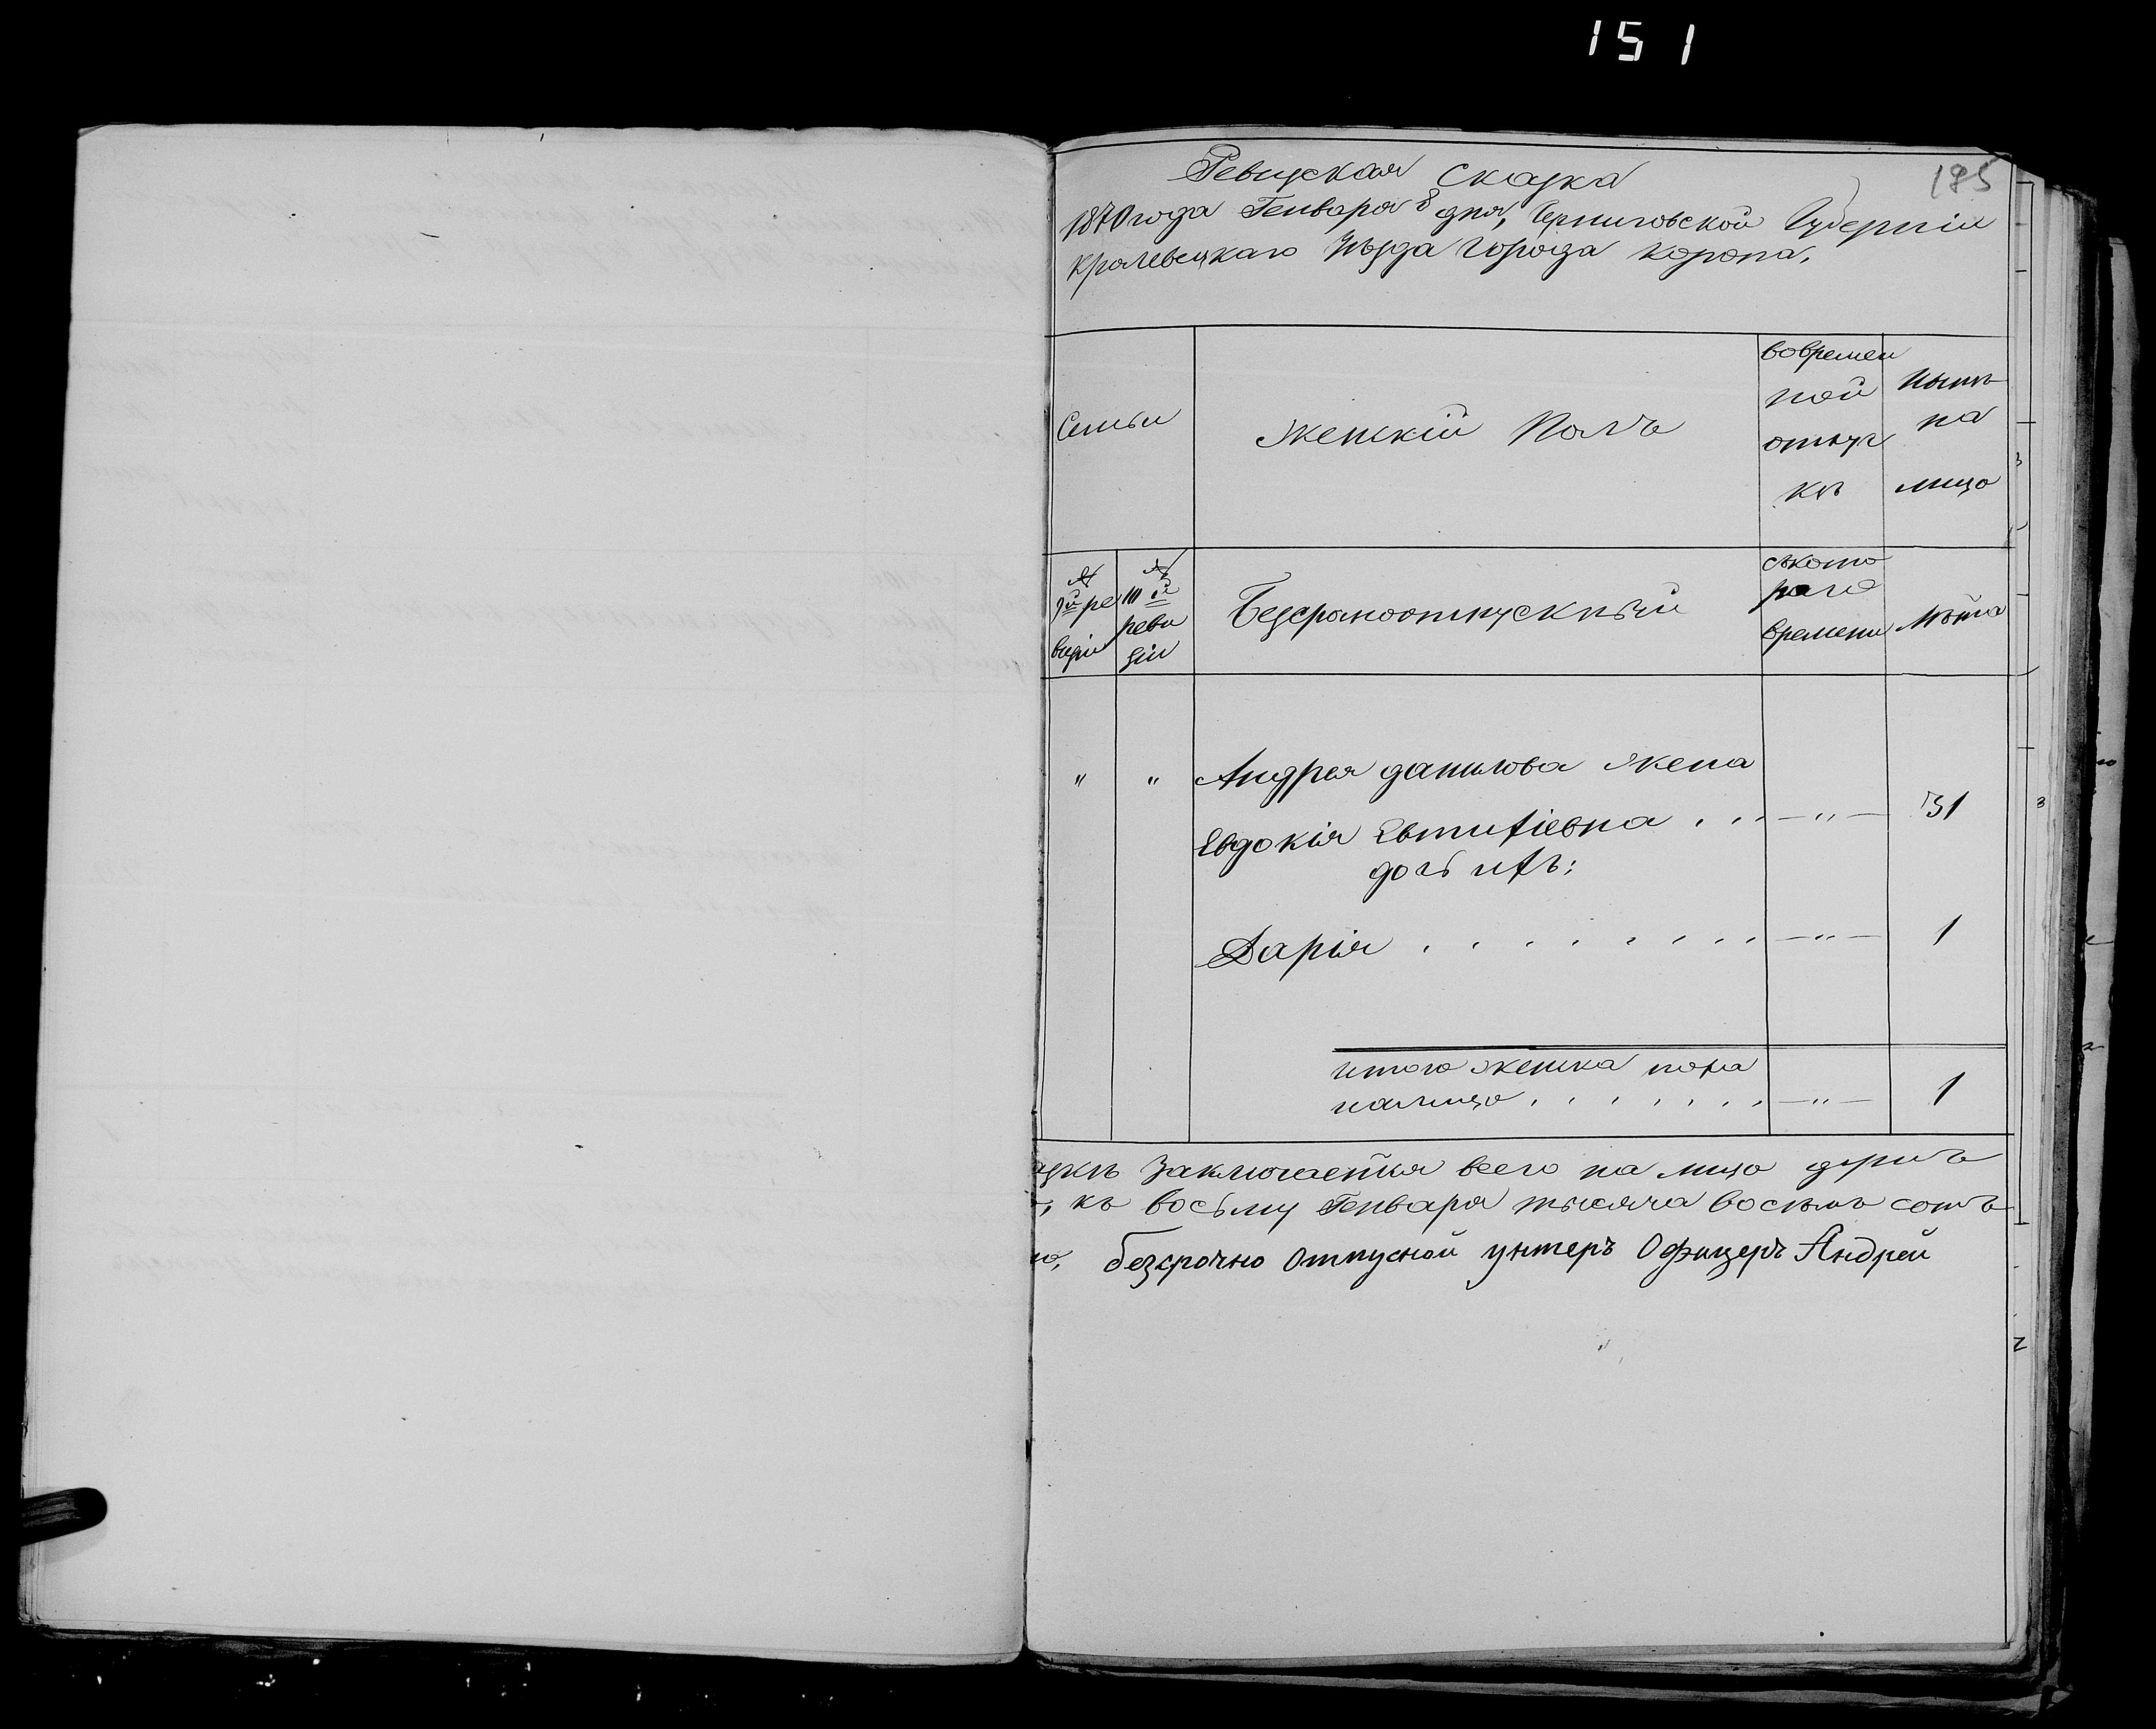 151
185
Ревизская Сказка
1870 года Генваря 8 дня, Черниговской Губерніи
Кролевецкаго Уѣзда города Коропа.
Семьи
Женскій Полъ
вовремен
ной
отлуч
кѣ
Нынѣ
на
лицо
№
9й ре
визіи
№
10й
реви
зіи
Безсрочноотпускный
съкото
раго
времени
Лѣта
" " Андрея данилова жена
Евдокія Евтифіевна . . . —"— 31
дочь ихъ:
Дарія . . . . . . . . —"— 1
итого женска пола
налицо . . . . . . . —"— 1
азкѣ Заключается всего на лицо душъ
къ восьму Генваря тысяча восемъ сотъ
безсрочно отпусной унтеръ Офицеръ Андрей